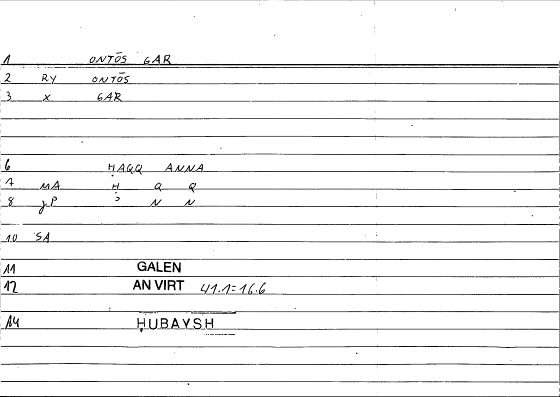 1 ONTŌS GAR
2 RY ONTŌS
3 X GAR
6 ḤAQQ ANNA
7 MA Ḥ Q Q
8 gP ʾ N N
10 SA
11 GALEN
12 AN VIRT 41.1=16.6
14 ḤUBAYSH